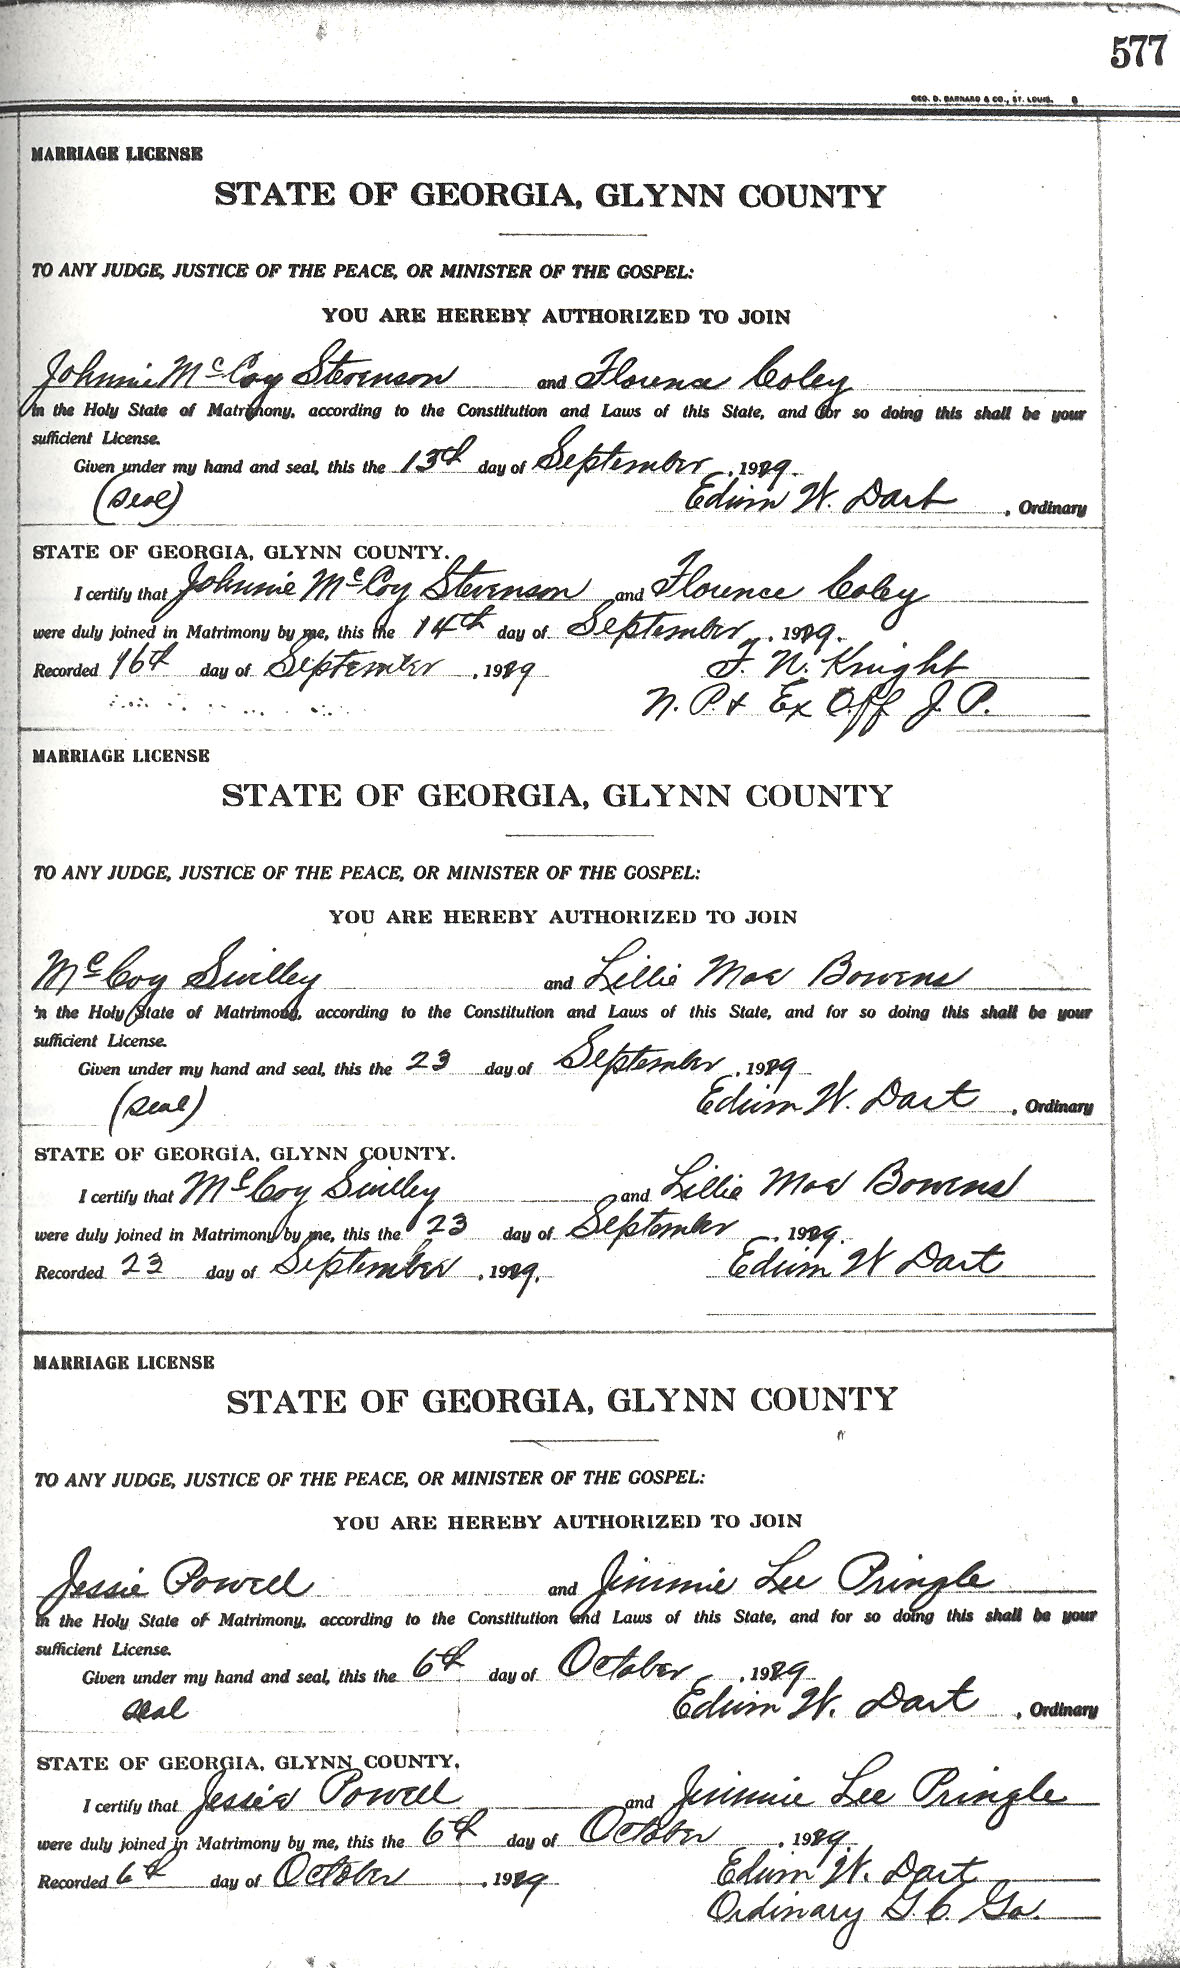 577
GEO. D. BARNARD & CO., ST. LOUIS.
MARRIAGE LICENSE
STATE OF GEORGIA, GLYNN COUNTY
TO ANY JUDGE, JUSTICE OF THE PEACE, OR MINISTER OF THE GOSPEL:
YOU ARE HEREBY AUTHORIZED TO JOIN
Johnnie McCoy Stevenson and Florence Coley
in the Holy State of Matrimony, according to the Constitution and Laws of this State, and for so doing this shall be your
sufficient License.
Given under my hand and seal, this the 13th day of September,
(Seal) Edwin W. Dart, Ordinary
STATE OF GEORGIA, GLYNN COUNTY.
I certify that Johnnie McCoy Stevenson and Florence Coley
were duly joined in Matrimony by me, this the 14th day of September,
Recorded 16th day of September, F. N. Knight
N. P. & Ex Off J. P.
MARRIAGE LICENSE
STATE OF GEORGIA, GLYNN COUNTY
TO ANY JUDGE, JUSTICE OF THE PEACE, OR MINISTER OF THE GOSPEL:
YOU ARE HEREBY AUTHORIZED TO JOIN
McCoy Swilley and Lillie Mae Bowens
in the Holy State of Matrimony, according to the Constitution and Laws of this State, and for so doing this shall be your
sufficient License.
Given under my hand and seal, this the 23 day of September,
(Seal) Edwin W. Dart, Ordinary
STATE OF GEORGIA, GLYNN COUNTY.
I certify that McCoy Swilley and Lillie Mae Bowens
were duly joined in Matrimony by me, this the 23 day of September,
Recorded 23 day of September, Edwin W Dart
MARRIAGE LICENSE
STATE OF GEORGIA, GLYNN COUNTY
TO ANY JUDGE, JUSTICE OF THE PEACE, OR MINISTER OF THE GOSPEL:
YOU ARE HEREBY AUTHORIZED TO JOIN
Jessie Powell and Jimmie Lee Pringle
in the Holy State of Matrimony, according to the Constitution and Laws of this State, and for so doing this shall be your
sufficient License.
Given under my hand and seal, this the 6th day of October,
Seal Edwin W. Dart, Ordinary
STATE OF GEORGIA, GLYNN COUNTY.
I certify that Jessie Powell and Jimmie Lee Pringle
were duly joined in Matrimony by me, this the 6th day of October,
Recorded 6th day of October, Edwin W. Dart
Ordinary G. C. Ga.